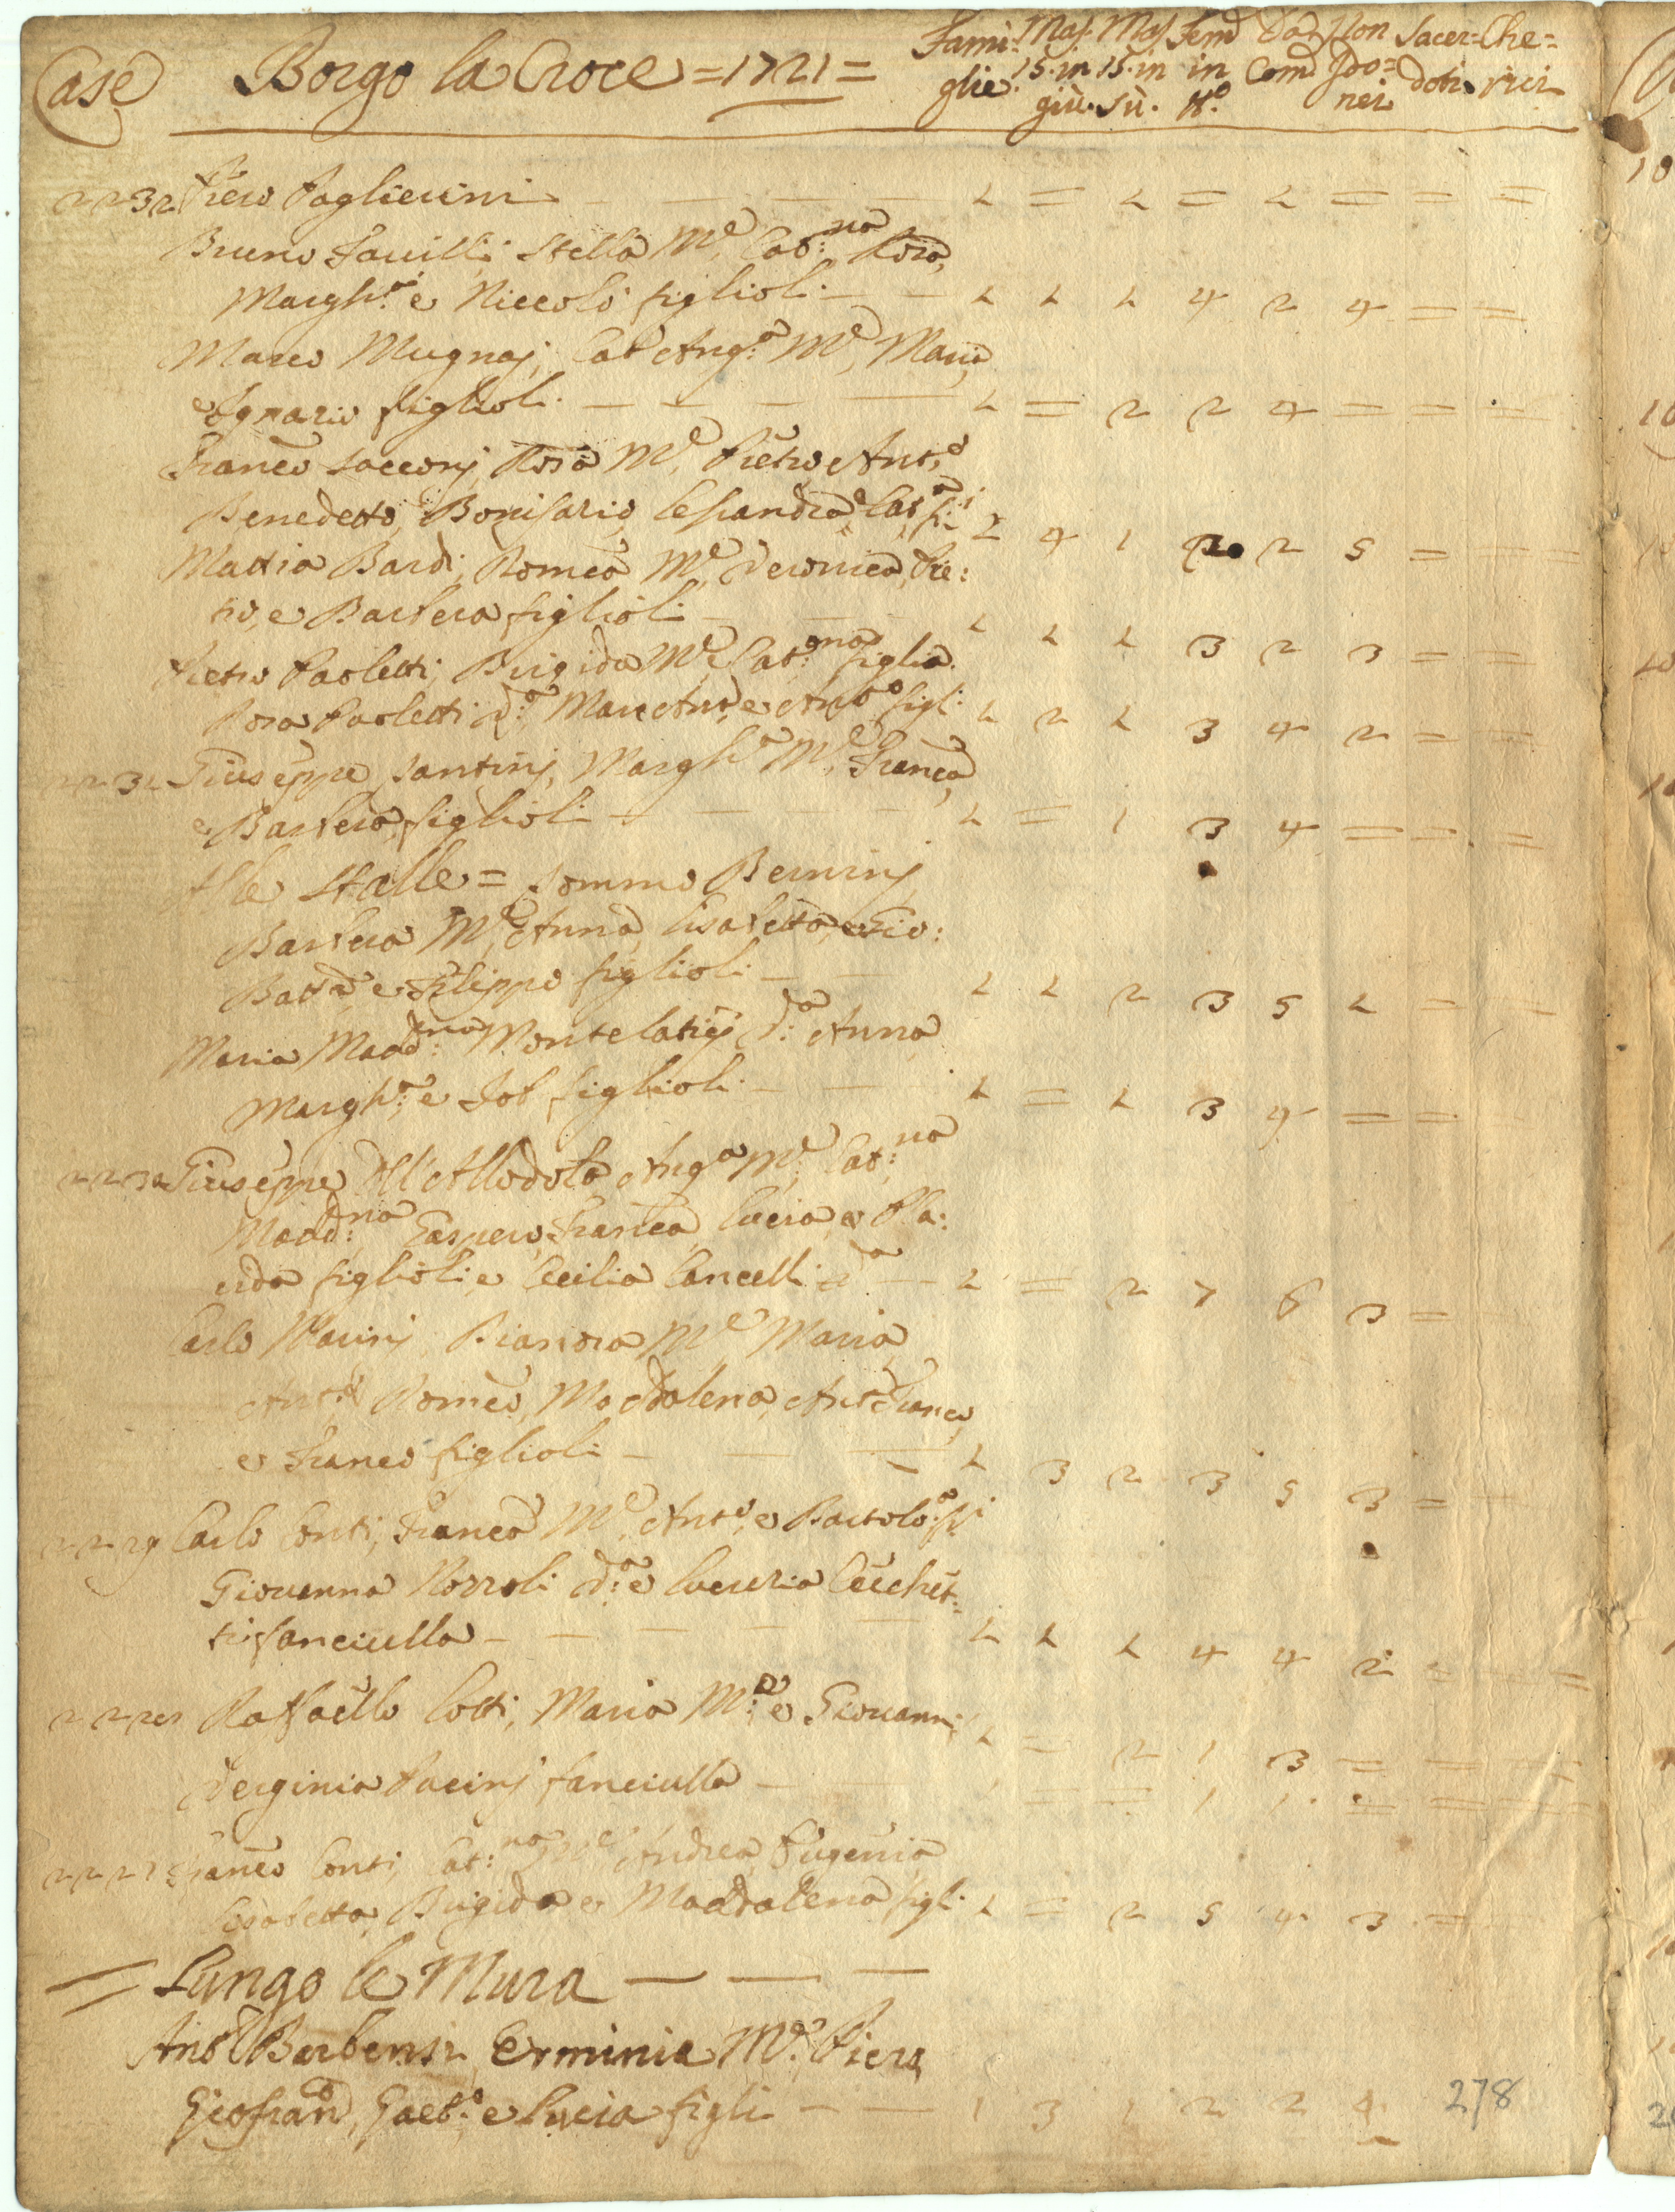 Case Borgo la Croce = 1721 = Fami= Mas. Mas. Fem. Da Non Sacer= Che=
glie. 15. in 15. in in Com. Ido= doti rici
giù. sù. nei
2232 Piero Paglierini — — — 1 = 1 = 1 = = =
Bruno Favilli Stella M.e Cat:na Rosa,
Margh.a e Niccolò figlioli — — 1 1 1 4 2 4 = =
Marco Mugnaj, Cat Ang.a M.e, Maria,
e Ignazio figlioli. — — — 1 = 2 2 4 = = =
Franco Sacconj Rosa M.e, Pietro, Ant.o
Benedetto, Bonifazio, Lesandra, Cat.a fi:i 1 4 1 2 2 5 = =
Mattia Bardi, Romea M.e, Veronica, Pie:
tro, e Barbera figlioli — 1 1 1 3 2 3 = =
Pietro Paoletti, Brigida M.e, Cat:na figlia.
Rosa Paoletti d:a Marc Ant. e Ant.o figli: 1 2 1 3 4 2 = =
223 Giuseppe Santinj, Margh.a M.e, Franca,
e Barbera figlioli — — 1 = 1 3 4 = = =
Stalle = Tommo Berninj
Barbera M.e, Anna, Lisabetta, e Gio:
Batta e Filippo figlioli — — 1 1 2 3 5 1 = =
Maria Madd:na Montelaticj d:a Anna
Margh:a e Job figlioli. — — 1 = 1 3 4 = =
223 Giuseppe dell'Allodola Ang.a M.e, Cat:na
Madd:na Gaspero, Franca, Lucia, e Pla:
cida figlioli, e Cecilia Cancelli d.a — 1 = 2 7 6 3 =
Carlo Marinj, Bianora M.e Maria
Ant.a Romeo, Maddalena, Ant Franco,
e Franco figlioli — — — 1 3 2 3 5 3 =
2229 Carlo Conti, Franca M.e, Ant.o, e Bartolo.a fi:i
Giovanna Nozzoli d:a e Lucrezia Cecchet=
ti fanciulla — — — — 1 1 1 4 4 2
Raffaello Cotti, Maria M:e e Giovanni 1 = 2 1 3 = = =
Verginia Pacinj fanciulla — 1 = = 1 1 = = =
222 Franco Conti, Cat:na M.e Andrea, Eugenia
Lisabetta, Brigida e Maddalena figli: 1 = 2 5 4 3 =
= Lungo le Mura — — —
Ant Barbensi Erminia M.e Piera
Giofran, Gaet.o e Lucia figli — — 1 3 1 2 2 4 278